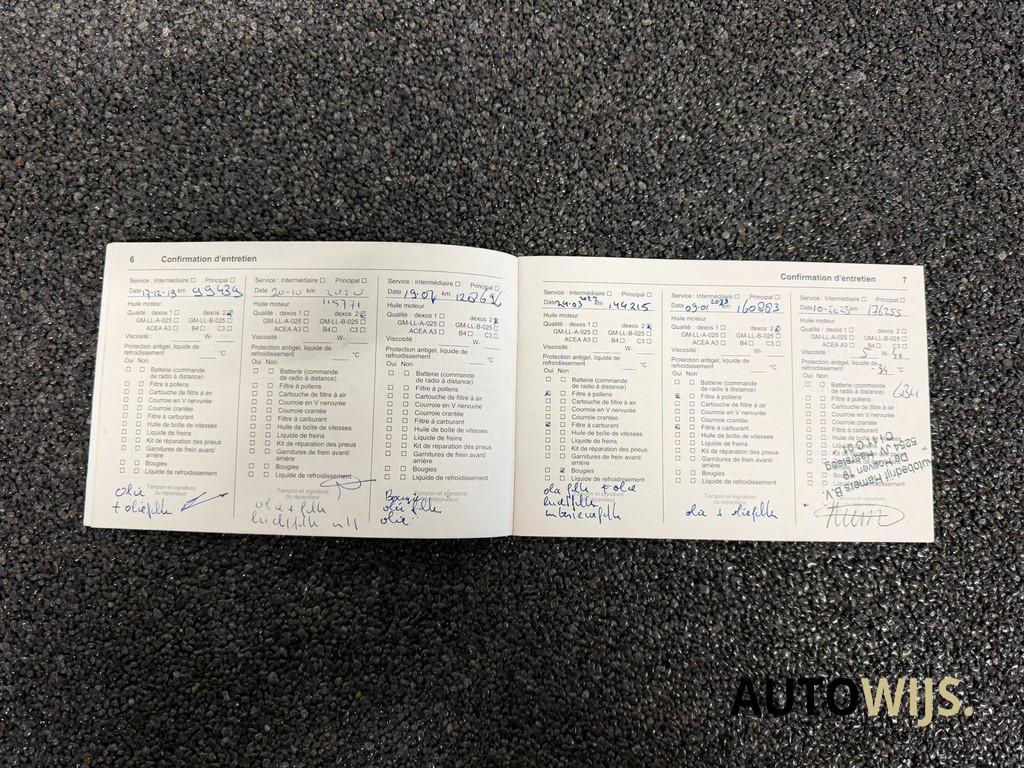 6 Confirmation d'entretien
Service : Intermédiaire Principal
Date 17-12-19 km 99439
Huile moteur
Qualité : dexos 1 dexos 2
GM-LL-A-025 GM-LL-B-025
ACEA A3 B4 C3
Viscosité : W-
Protection antigel, liquide de
refroidissement °C
Oui Non
Batterie (commande
de radio à distance)
Filtre à pollens
Cartouche de filtre à air
Courroie en V nervurée
Courroie crantée
Filtre à carburant
Huile de boîte de vitesses
Liquide de freins
Kit de réparation des pneus
Garnitures de frein avant/
arrière
Bougies
Liquide de refroidissement
Tampon et signature
du réparateur
olie
+ oliefilter
Service : Intermédiaire Principal
Date 20-10 km 2020
115771
Huile moteur
Qualité : dexos 1 dexos 2
GM-LL-A-025 GM-LL-B-025
ACEA A3 B4 C3
Viscosité : W-
Protection antigel, liquide de
refroidissement °C
Oui Non
Batterie (commande
de radio à distance)
Filtre à pollens
Cartouche de filtre à air
Courroie en V nervurée
Courroie crantée
Filtre à carburant
Huile de boîte de vitesses
Liquide de freins
Kit de réparation des pneus
Garnitures de frein avant/
arrière
Bougies
Liquide de refroidissement
Tampon et signature
du réparateur
olie + filter
Service : Intermédiaire Principal
Date 19.07 km 128696
Huile moteur
Qualité : dexos 1 dexos 2
GM-LL-A-025 GM-LL-B-025
ACEA A3 B4 C3
Viscosité : W-
Protection antigel, liquide de
refroidissement °C
Oui Non
Batterie (commande
de radio à distance)
Filtre à pollens
Cartouche de filtre à air
Courroie en V nervurée
Courroie crantée
Filtre à carburant
Huile de boîte de vitesses
Liquide de freins
Kit de réparation des pneus
Garnitures de frein avant/
arrière
Bougies
Liquide de refroidissement
Tampon et signature
du réparateur
olie filter
olie
Confirmation d'entretien 7
Service : Intermédiaire Principal
Date 24.03 2022 km 144215
Huile moteur
Qualité : dexos 1 dexos 2
GM-LL-A-025 GM-LL-B-025
ACEA A3 B4 C3
Viscosité : W-
Protection antigel, liquide de
refroidissement °C
Oui Non
Batterie (commande
de radio à distance)
Filtre à pollens
Cartouche de filtre à air
Courroie en V nervurée
Courroie crantée
Filtre à carburant
Huile de boîte de vitesses
Liquide de freins
Kit de réparation des pneus
Garnitures de frein avant/
arrière
Bougies
Liquide de refroidissement
Tampon et signature
du réparateur
olie filter + olie
Service : Intermédiaire Principal
Date 09.01 2023 km 160883
Huile moteur
Qualité : dexos 1 dexos 2
GM-LL-A-025 GM-LL-B-025
ACEA A3 B4 C3
Viscosité : W-
Protection antigel, liquide de
refroidissement °C
Oui Non
Batterie (commande
de radio à distance)
Filtre à pollens
Cartouche de filtre à air
Courroie en V nervurée
Courroie crantée
Filtre à carburant
Huile de boîte de vitesses
Liquide de freins
Kit de réparation des pneus
Garnitures de frein avant/
arrière
Bougies
Liquide de refroidissement
Tampon et signature
du réparateur
olie + oliefilter
Service : Intermédiaire Principal
Date km 176255
Huile moteur
Qualité : dexos 1 dexos 2
GM-LL-A-025 GM-LL-B-025
ACEA A3 B4 C3
Viscosité : 5 W-
Protection antigel, liquide de
refroidissement -34 °C
Oui Non
Batterie (commande
de radio à distance)
Filtre à pollens
Cartouche de filtre à air
Courroie en V nervurée
Courroie crantée
Filtre à carburant
Huile de boîte
Liquide de
Kit de
Garnitures
arrière
Bougies
Liquide de
Tampon et signature
Autobedrijf Hamers B.V.
AUTOWIJS.